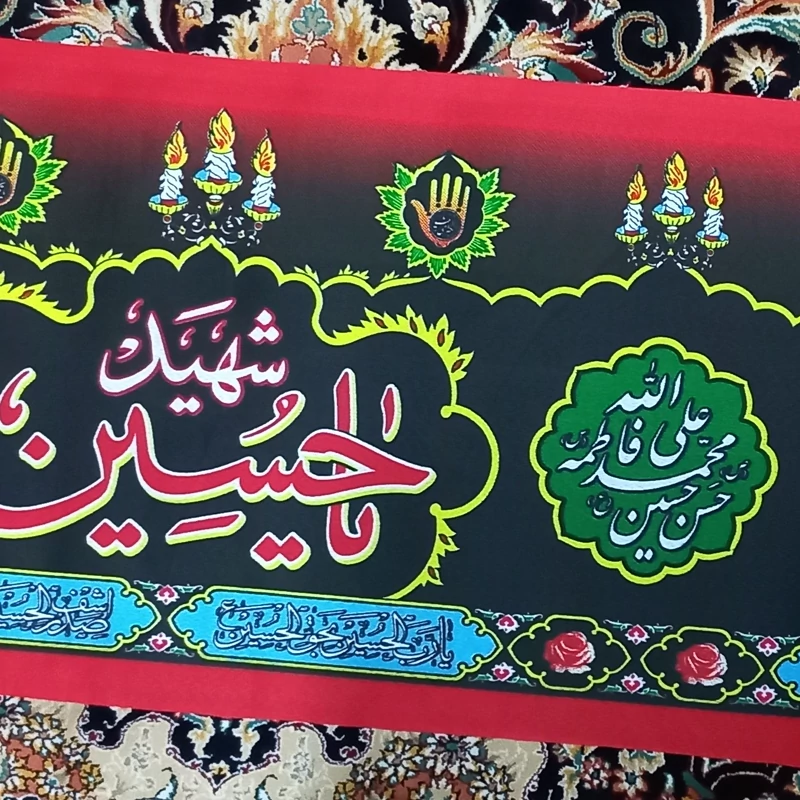 شهید
یا حسین
الله
علی
محمد فاطمه
حسن حسین
یا رب الحسین بحق الحسین
اشف صدر الحسین